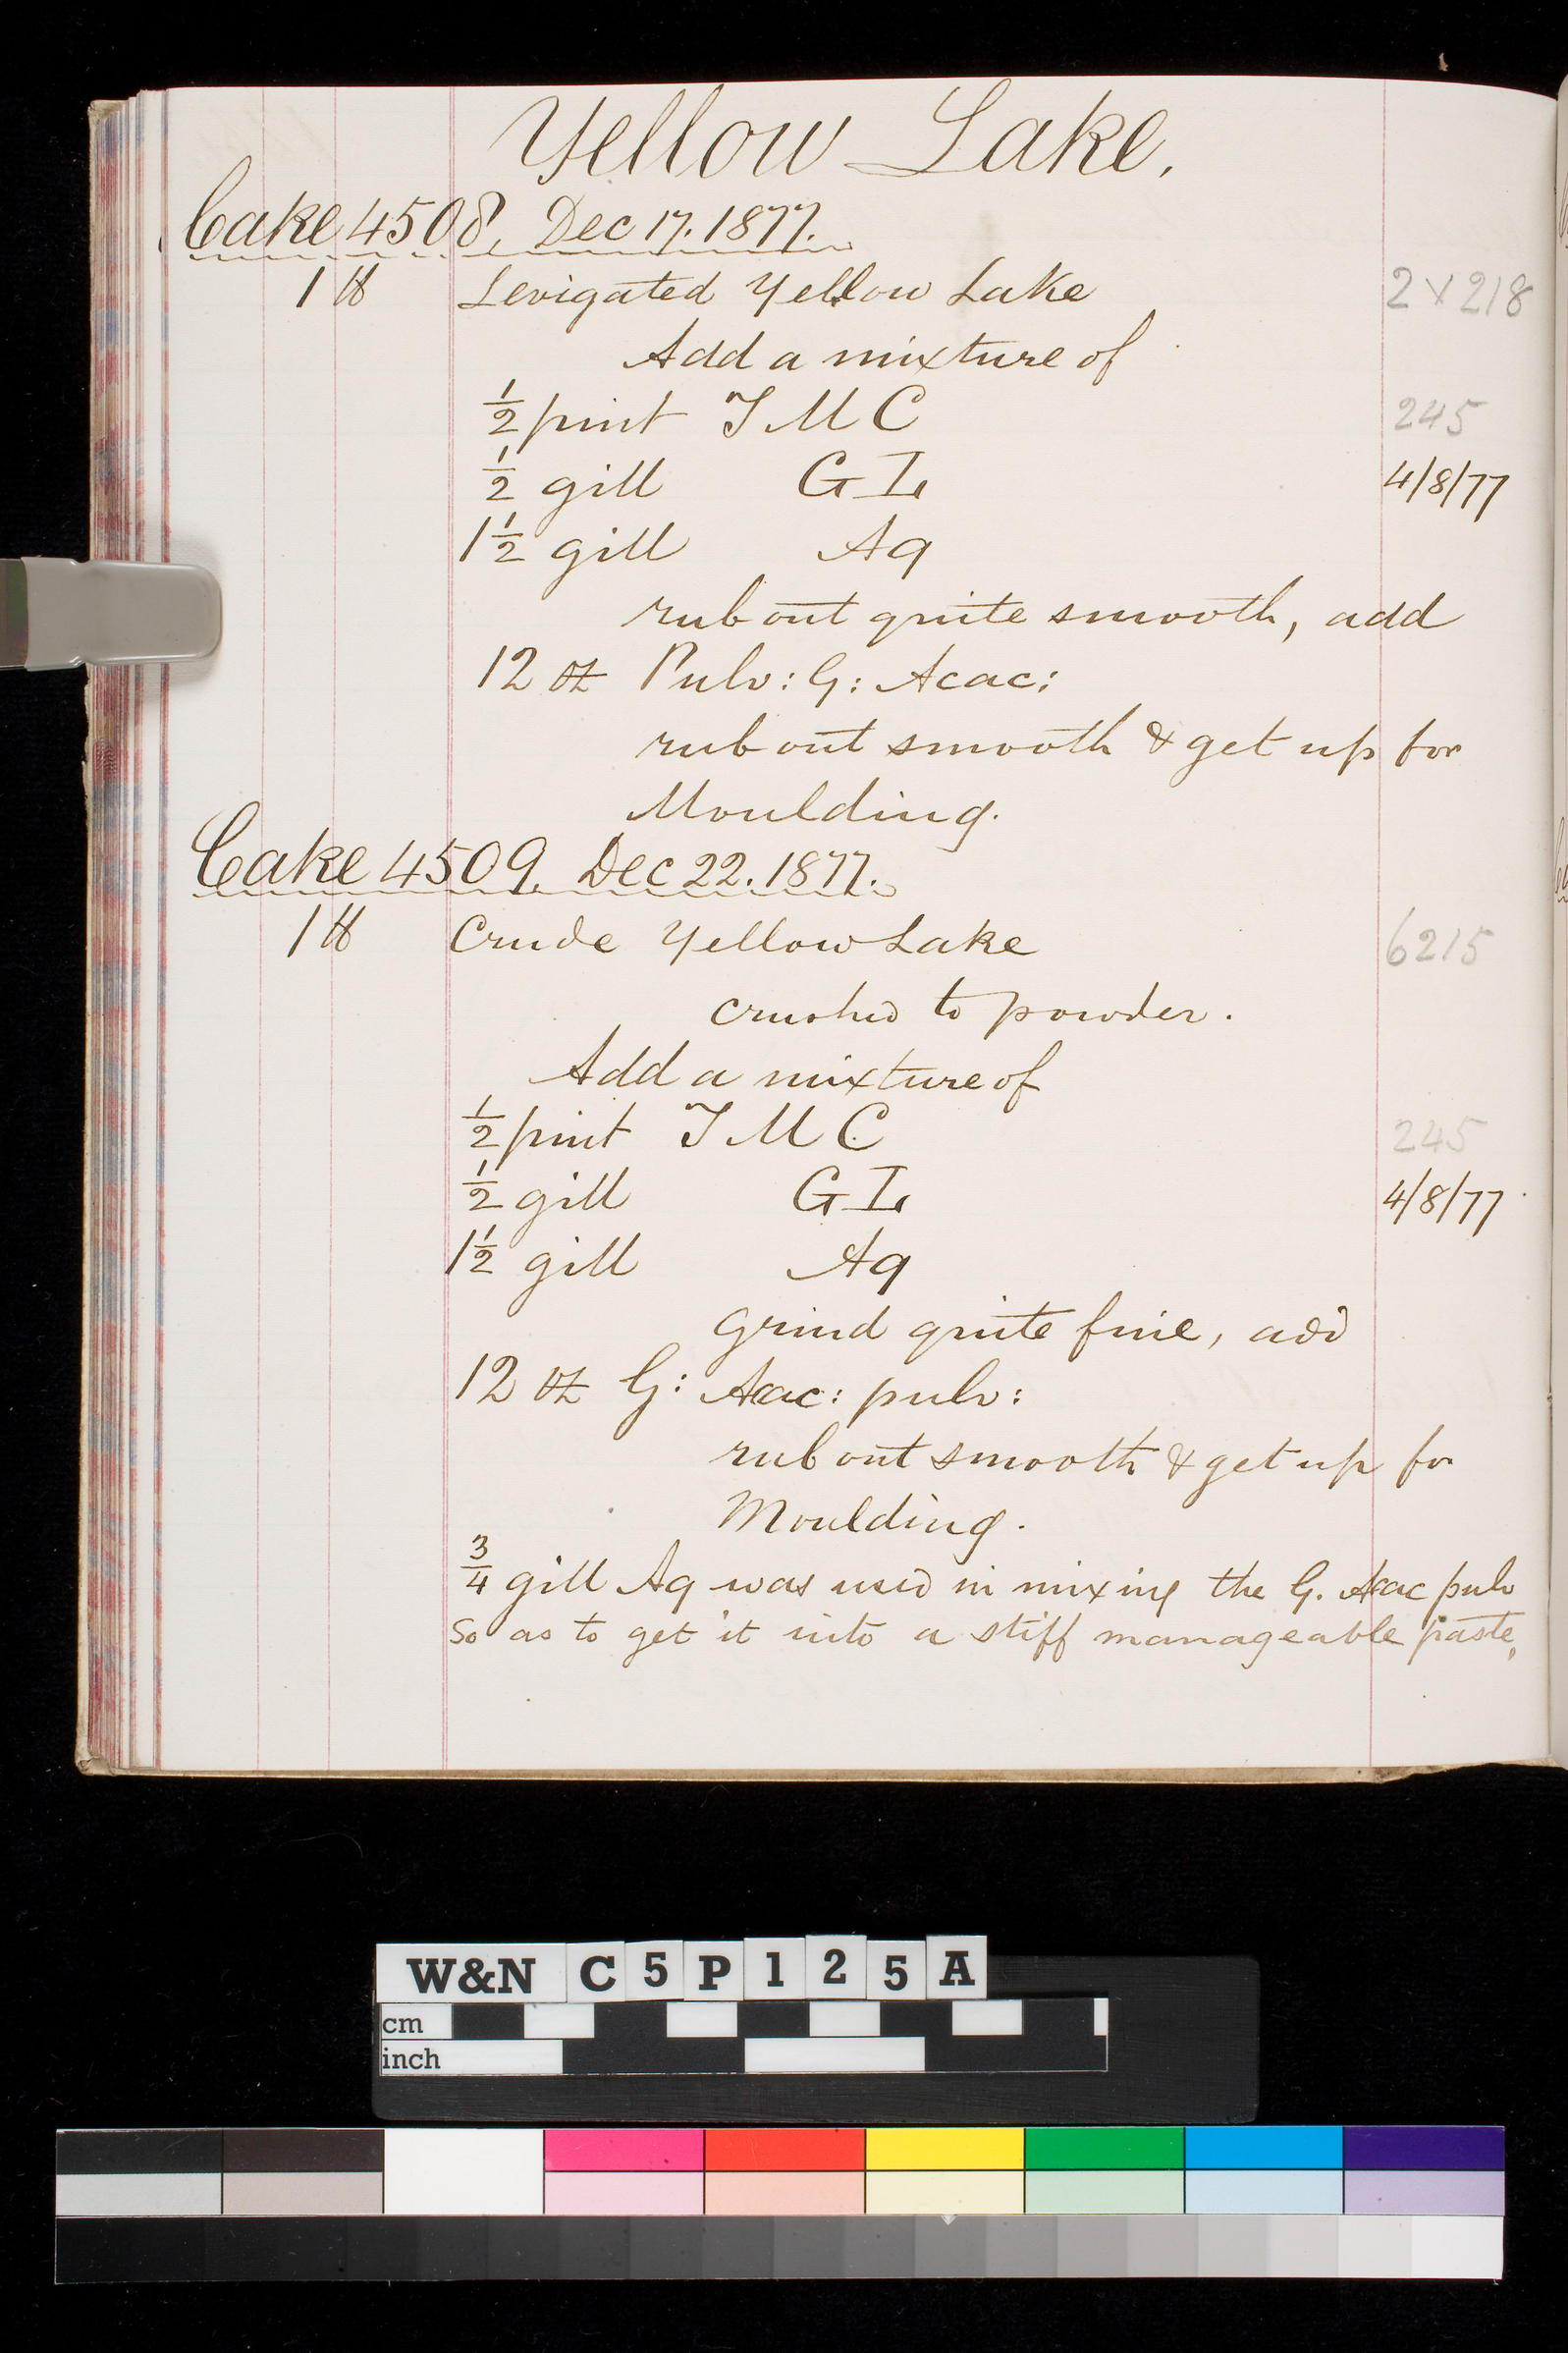 Yellow Lake.
Cake 4508. Dec 17. 1877.
1 ℔ Levigated Yellow Lake 2 X 218
Add a mixture of
½ pint T M C 245
½ gill G L 4/8/77
1½ gill Aq
rub out quite smooth, add
12 oz Pulv: G: Acac:
rub out smooth & get up for
Moulding.
Cake 4509. Dec 22. 1877.
1 ℔ Crude Yellow Lake 6215
crushed to powder.
Add a mixture of
½ pint T M C 245
½ gill G L 4/8/77
1½ gill Aq
Grind quite fine, add
12 oz G: Acac: pulv:
rub out smooth & get up for
Moulding.
¾ gill Aq was used in mixing the G. Acac pulv
so as to get it into a stiff manageable paste,
W&N C5P125A
cm
inch